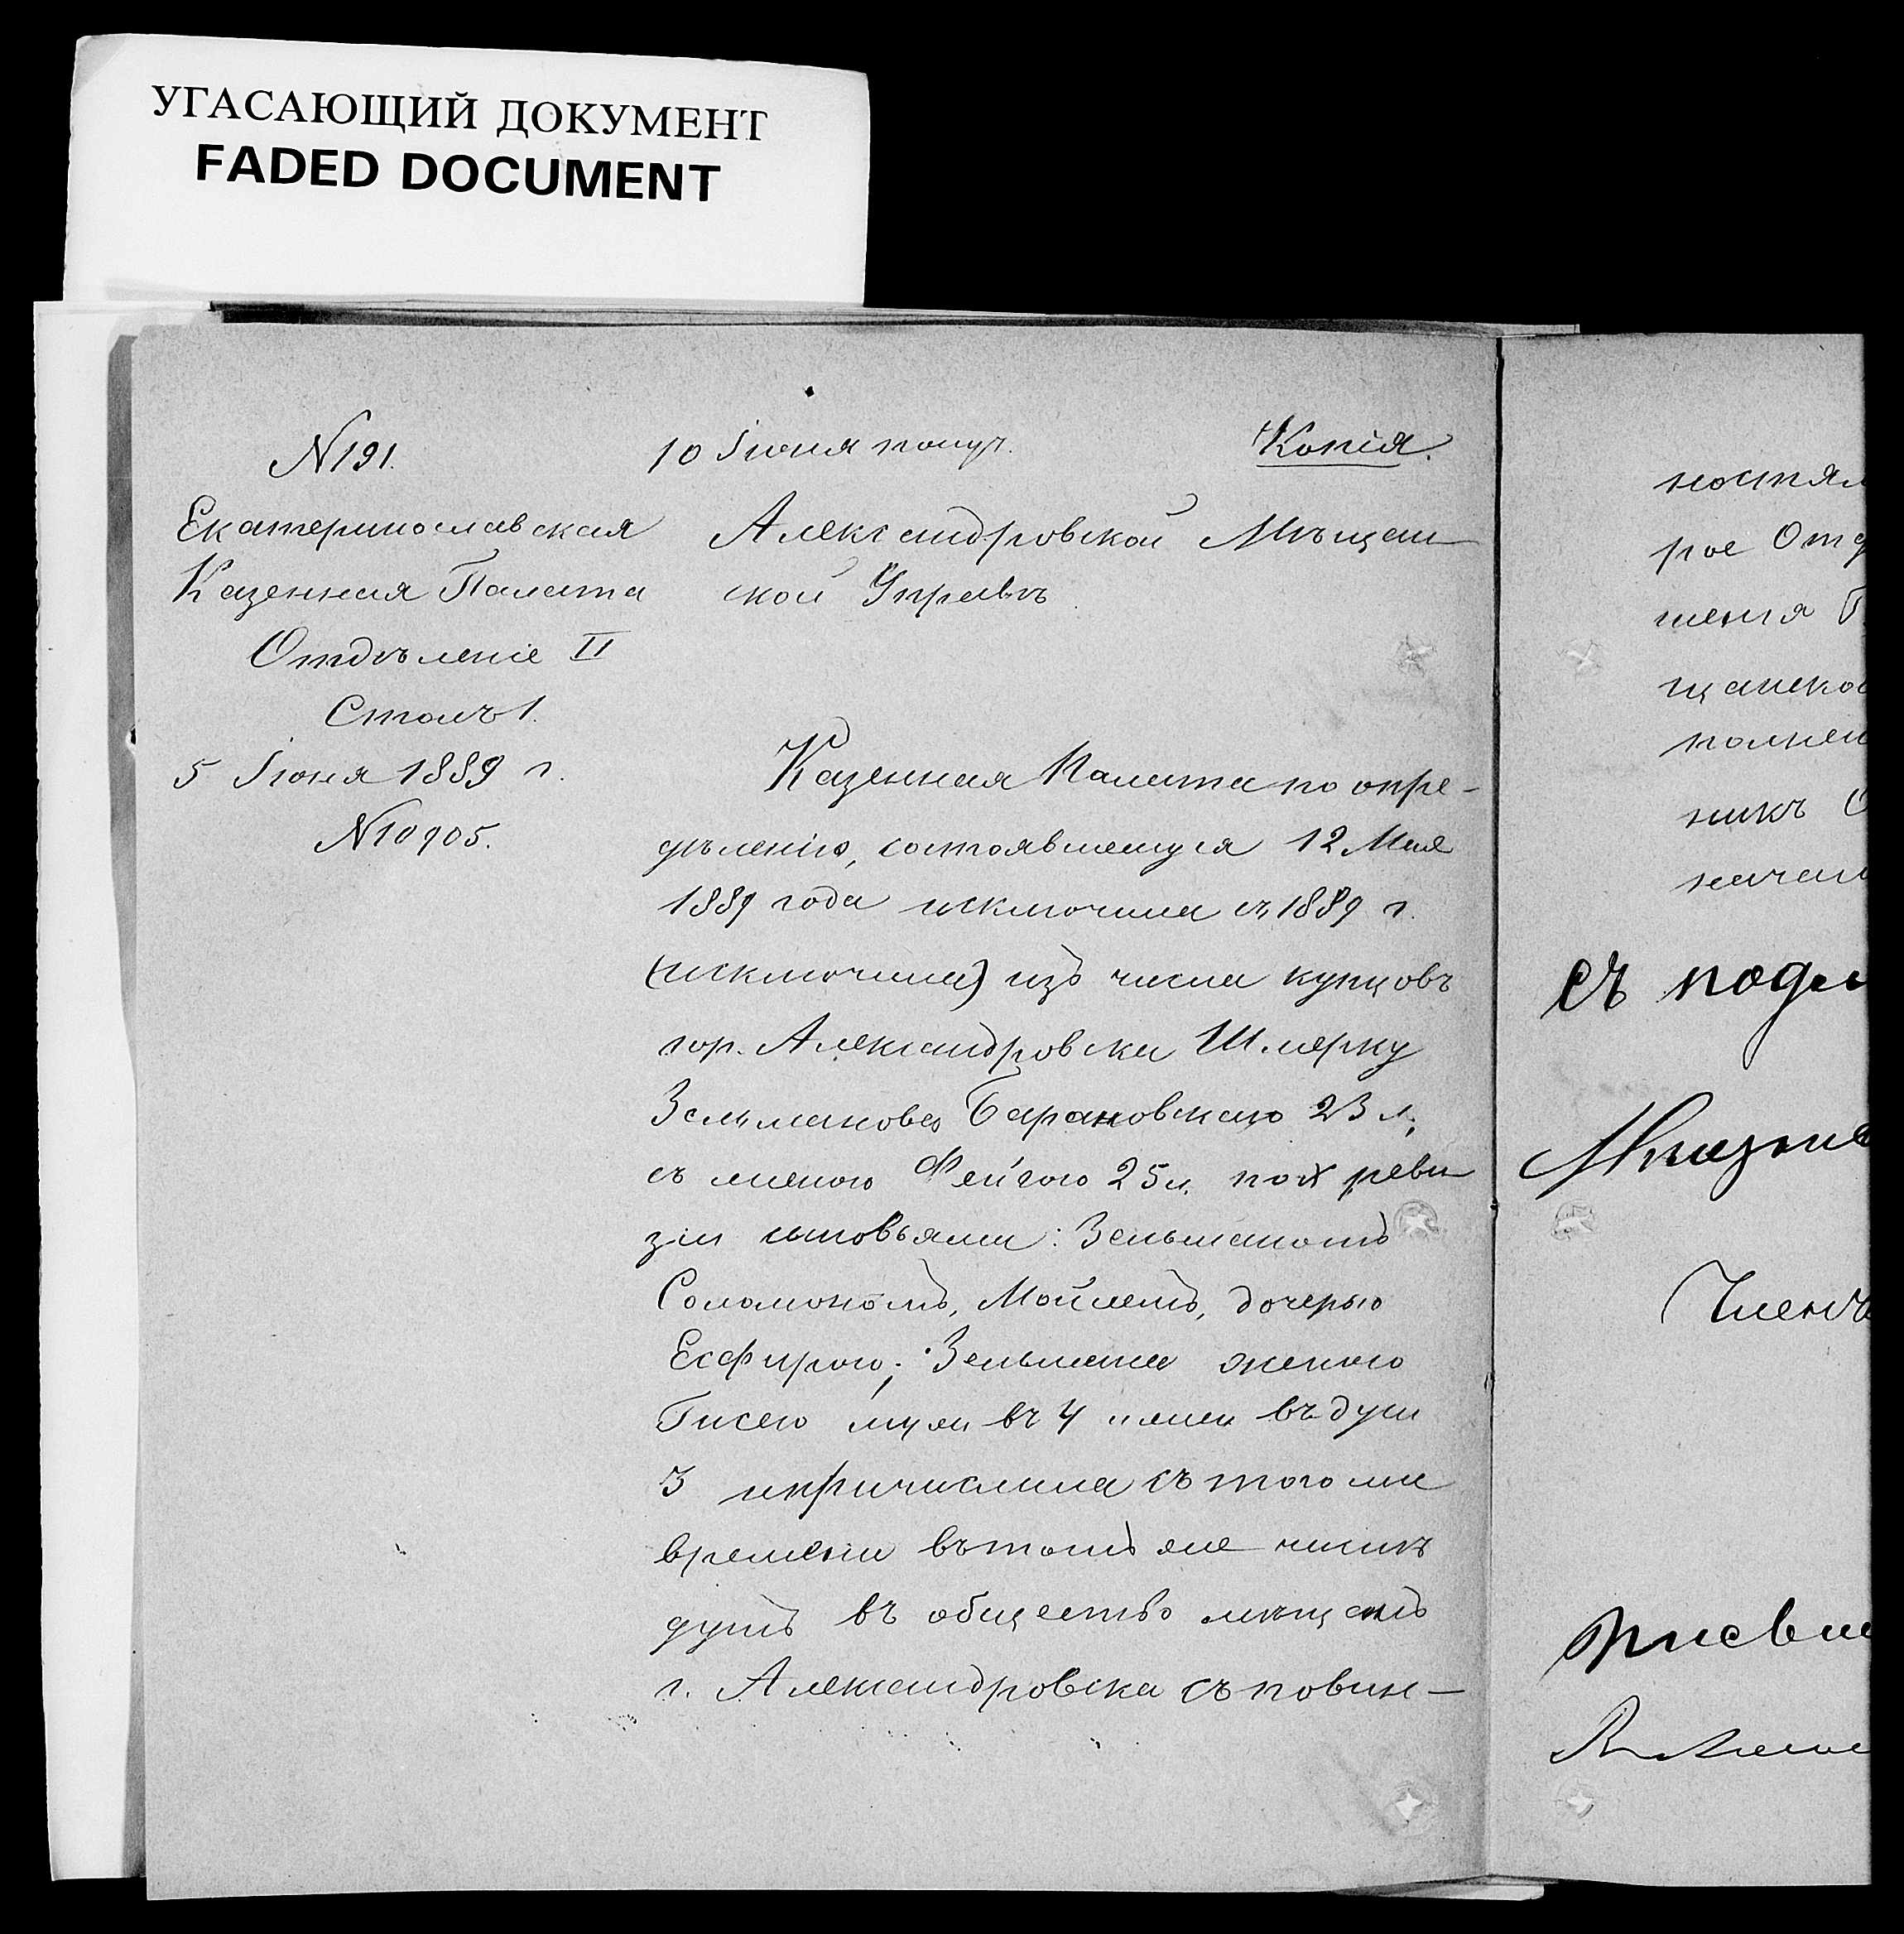 УГАСАЮЩИЙ ДОКУМЕНТ
FADED DOCUMENT
N 191.
10 Іюня получ.
Копія.
Екатеринославская
Казенная Палата
Отдѣленіе II
Столъ 1.
5 Іюня 1889 г.
N 10905.
Александровской Мѣщан
ской Управѣ
Казенная Палата по опре-
дѣленію, состоявшемуся 12 Мая
1889 года исключила съ 1889 г.
(исключила) изъ числа купцовъ
гор. Александровска Шмерку
Зельманова Барановскаго 23 л,
съ женою Фейгою 25 л. по X реви
зіи сыновьями: Зельманомъ
Соломономъ, Мойсеемъ, дочерью
Есфирою; Зельмана женою
Гисею муж въ 4 и жен въ душ
3 и причислила съ того же
времени въ томъ же числѣ
душъ въ общество мѣщанъ
г. Александровска съ повин-
ностям
рое Отд
шенія
щанско
полнен
никъ
начал
съ подл
Членъ